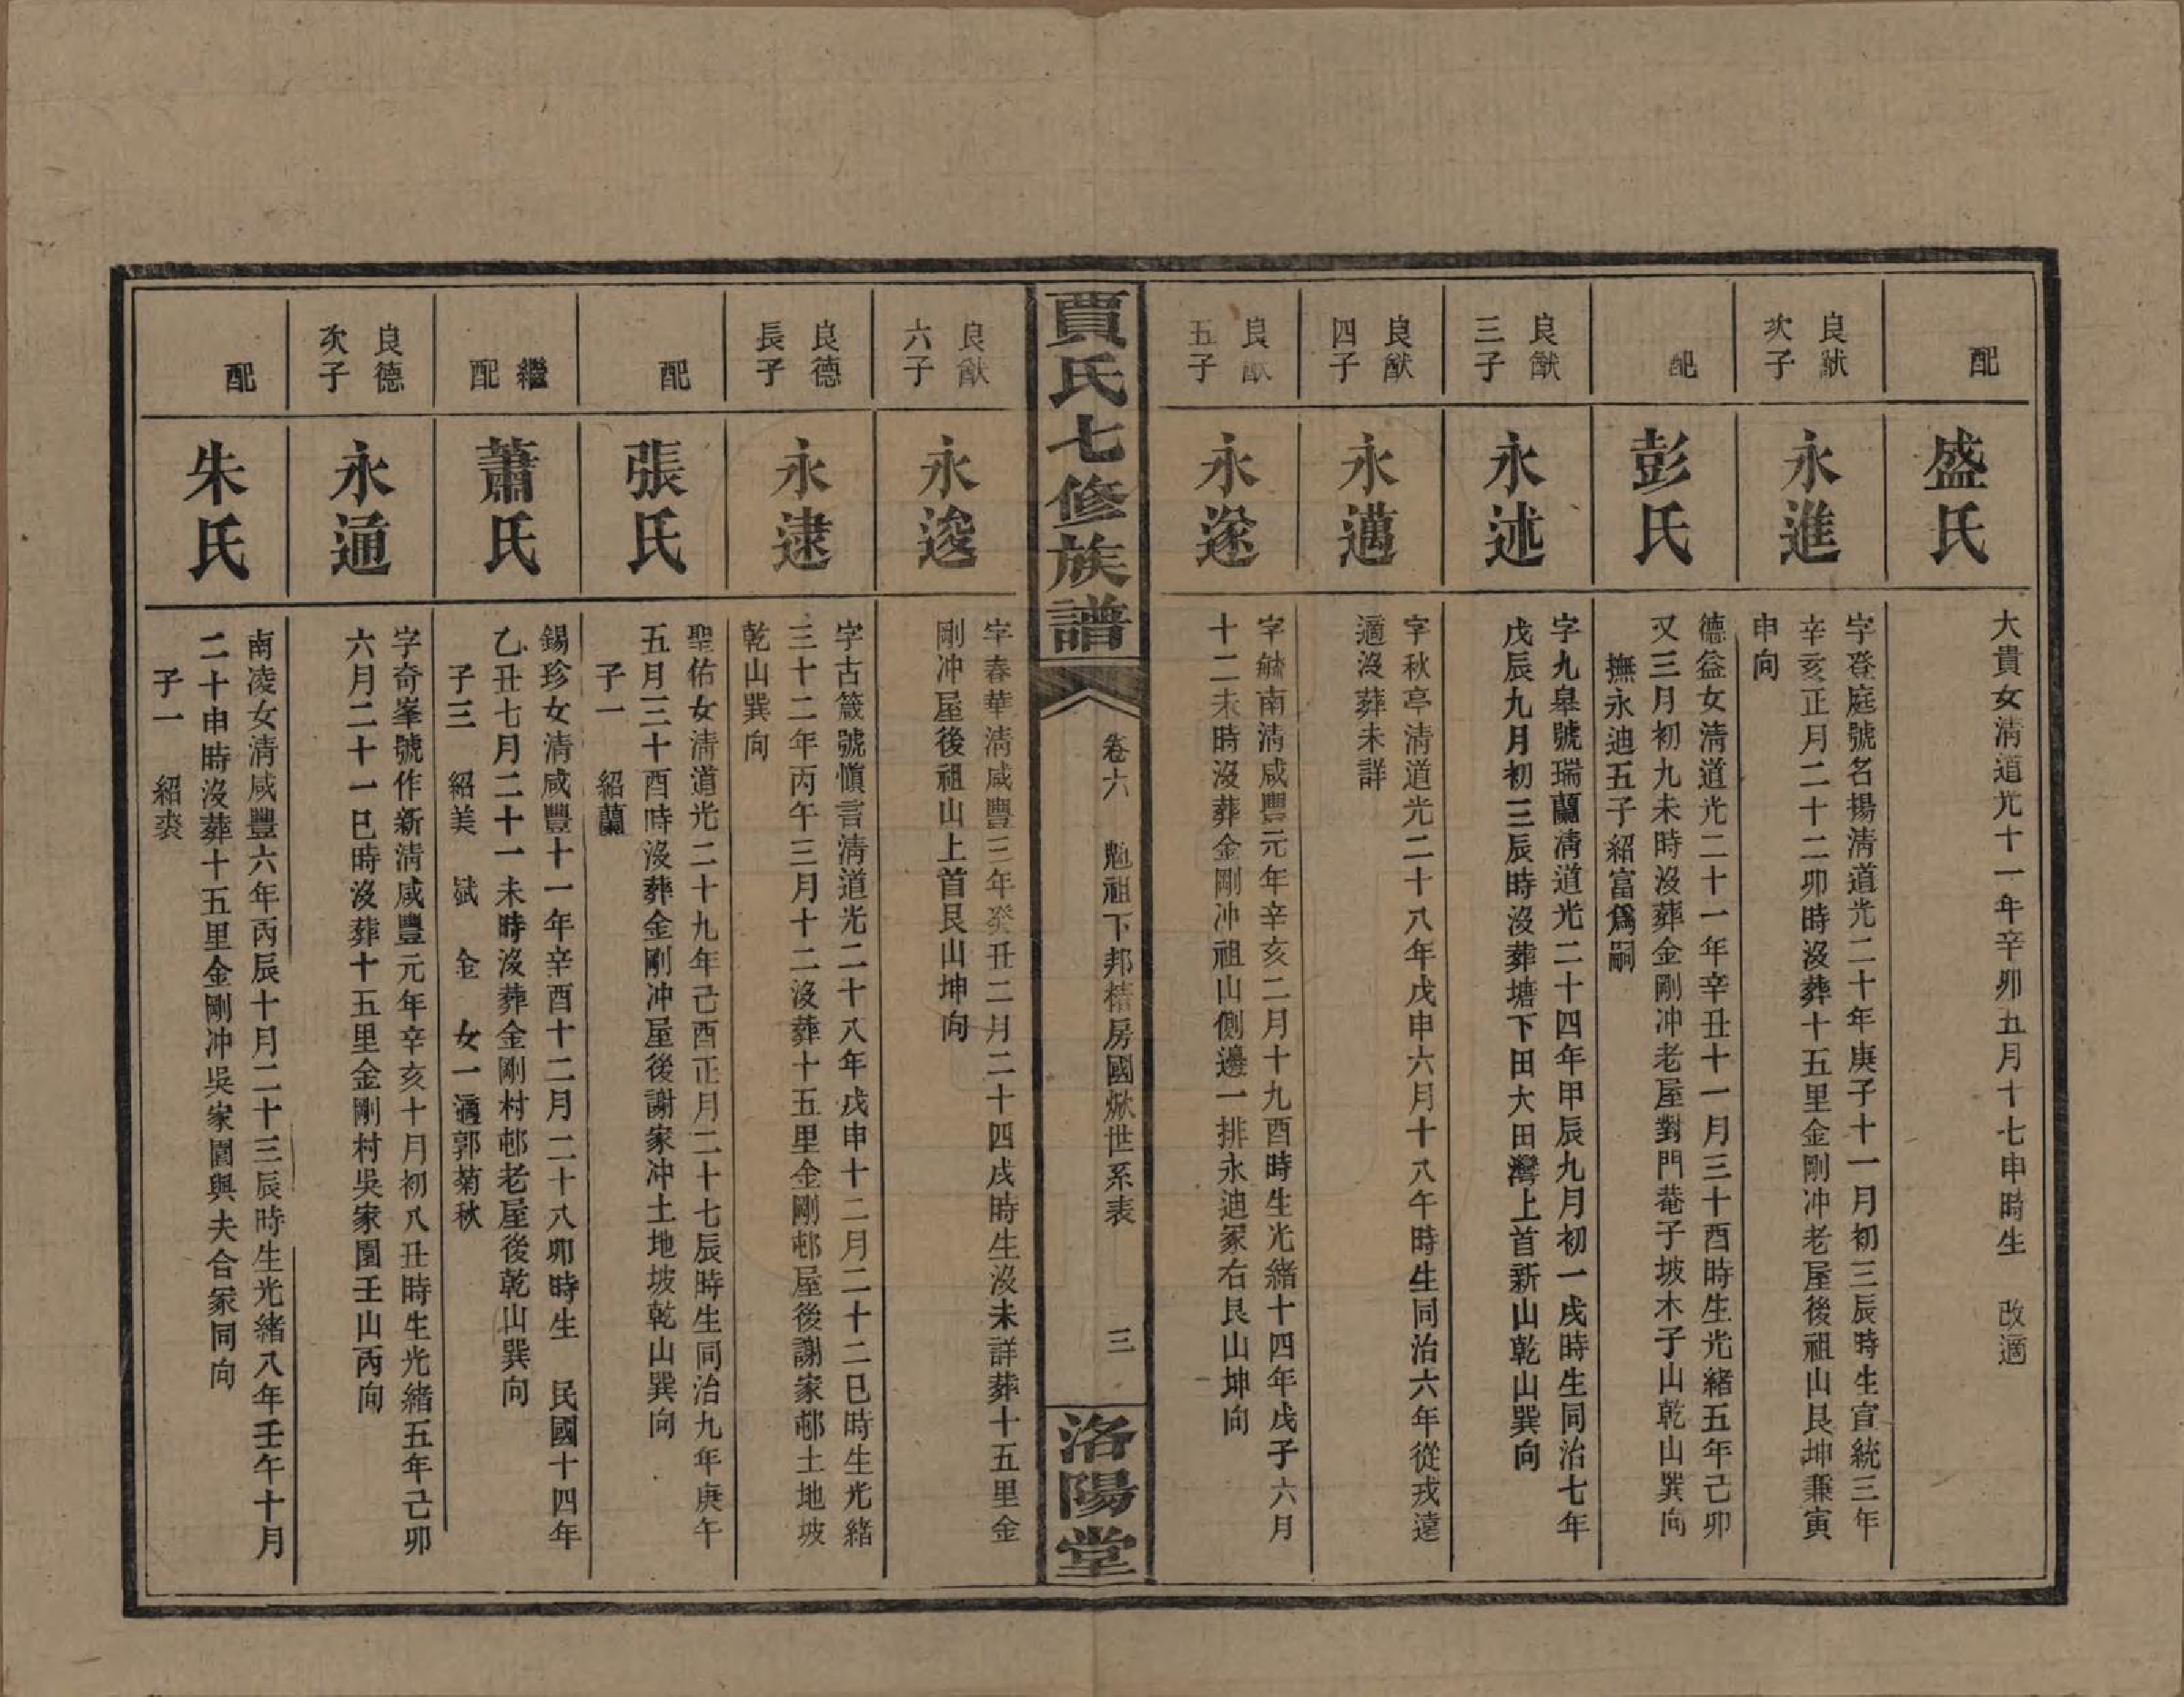 配
盛氏
大貴女淸道光十一年辛卯五月十七申時生　改適
良猷
次子
永進
字登庭號名揚淸道光二十年庚子十一月初三辰時生宣統三年
辛亥正月二十二卯時沒葬十五里金剛冲老屋後祖山艮坤兼寅
申向
配
彭氏
德益女淸道光二十一年辛丑十一月三十酉時生光緖五年己卯
又三月初九未時沒葬金剛冲老屋對門菴子坡木子山乾山巽向
撫永迪五子紹富爲嗣
良猷
三子
永述
字九皋號瑞蘭淸道光二十四年甲辰九月初一戌時生同治七年
戊辰九月初三辰時沒葬塘下田大田灣上首新山乾山巽向
良猷
四子
永邁
字秋亭淸道光二十八年戊申六月十八午時生同治六年從戎遠
適沒葬未詳
良猷
五子
永邃
字毓南淸咸豐元年辛亥二月十九酉時生光緖十四年戊子六月
十二未時沒葬金剛冲祖山側邊一排永迪冢右艮山坤向
賈氏七修族譜
卷六　魁祖下邦楮房國焮世系表　三
洛陽堂
良猷
六子
永逡
字春華淸咸豐三年癸丑二月二十四戌時生沒未詳葬十五里金
剛冲屋後祖山上首艮山坤向
良德
長子
永逮
字古箴號愼言淸道光二十八年戊申十二月二十二巳時生光緖
三十二年丙午三月十二沒葬十五里金剛邨屋後謝家邨土地坡
乾山巽向
配
張氏
聖佑女淸道光二十九年己酉正月二十七辰時生同治九年庚午
五月三十酉時沒葬金剛冲屋後謝家冲土地坡乾山巽向
子一　紹蘭
繼
配
蕭氏
錫珍女淸咸豐十一年辛酉十二月二十八卯時生　民國十四年
乙丑七月二十一未時沒葬金剛村邨老屋後乾山巽向
子三　紹美　斌　金　女一適郭菊秋
良德
次子
永通
字奇峯號作新淸咸豐元年辛亥十月初八丑時生光緖五年己卯
六月二十一巳時沒葬十五里金剛村吳家園壬山丙向
配
朱氏
南凌女淸咸豐六年丙辰十月二十三辰時生光緖八年壬午十月
二十申時沒葬十五里金剛冲吳家園與夫合冢同向
子一　紹裘